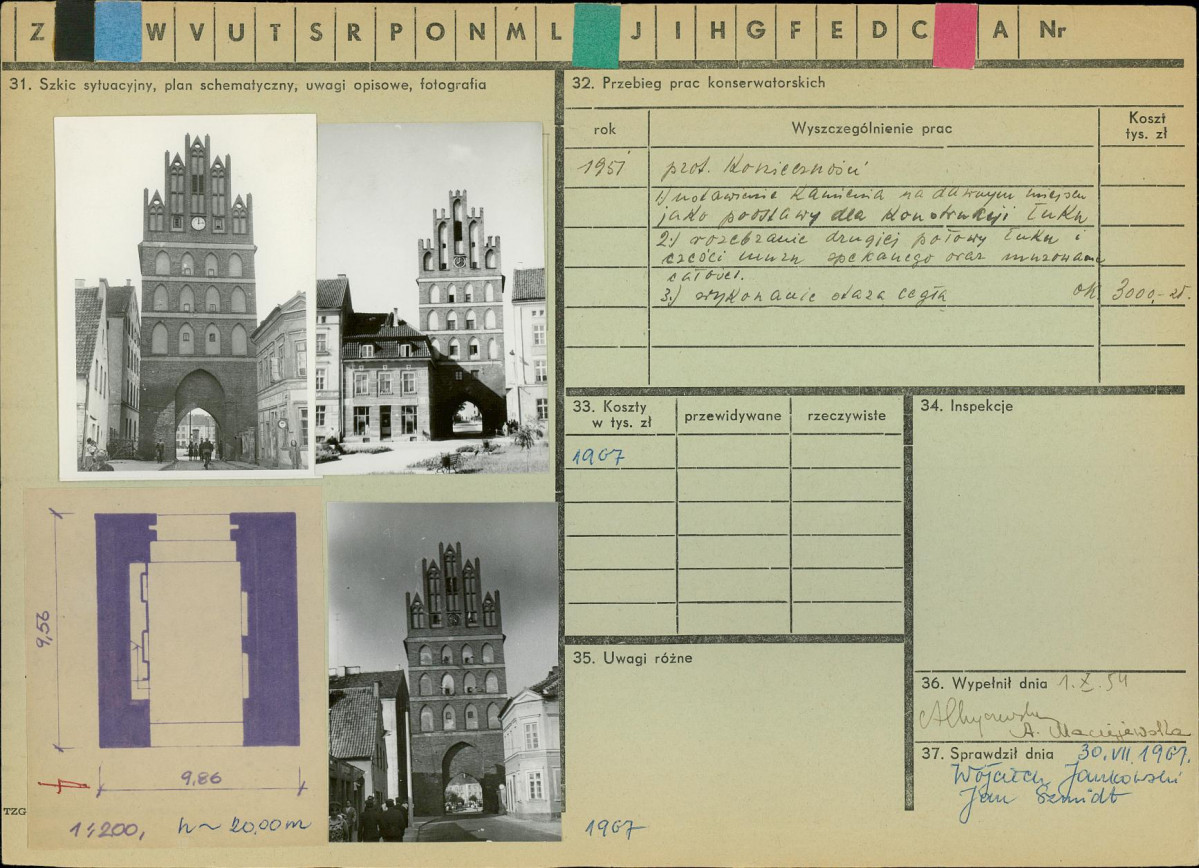 Z W V U T S R P O N M L J I H G F E D C A Nr
31. Szkic sytuacyjny, plan schematyczny, uwagi opisowe, fotografia
9,56
9,86
1:200, h ~ 20,00 m
TZG
32. Przebieg prac konserwatorskich
rok Wyszczególnienie prac Koszt tys. zł
1951 prot. Konieczności
1) ustawienie kamienia na dawnym miejscu
jako podstawy dla konstrukcji łuku
2.) rozebranie drugiej połowy łuku i
części muru spękanego oraz
całości.
3.) wykonanie cegłą ok. 3000,- zł.
33. Koszty w tys. zł przewidywane rzeczywiste
1967
34. Inspekcje
35. Uwagi różne
1967
36. Wypełnił dnia 1.X.54
A. Maciejewska
37. Sprawdził dnia 30.VII.1967.
Wojciech Jankowski
Jan Szmidt